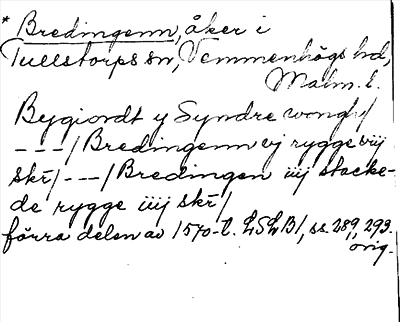 * Bredingenn, åker i
Tullstorps sn, Vemmenhögs hd,
Malm. l.
Bygiordt y Syndre wongh/
---/Bredingenn vj rygge viij
skr/---/Bredingen iiij stacke-
de rygge iiij skr/
förra delen av 1570-t. LSLB1, ss. 289, 293.
orig.